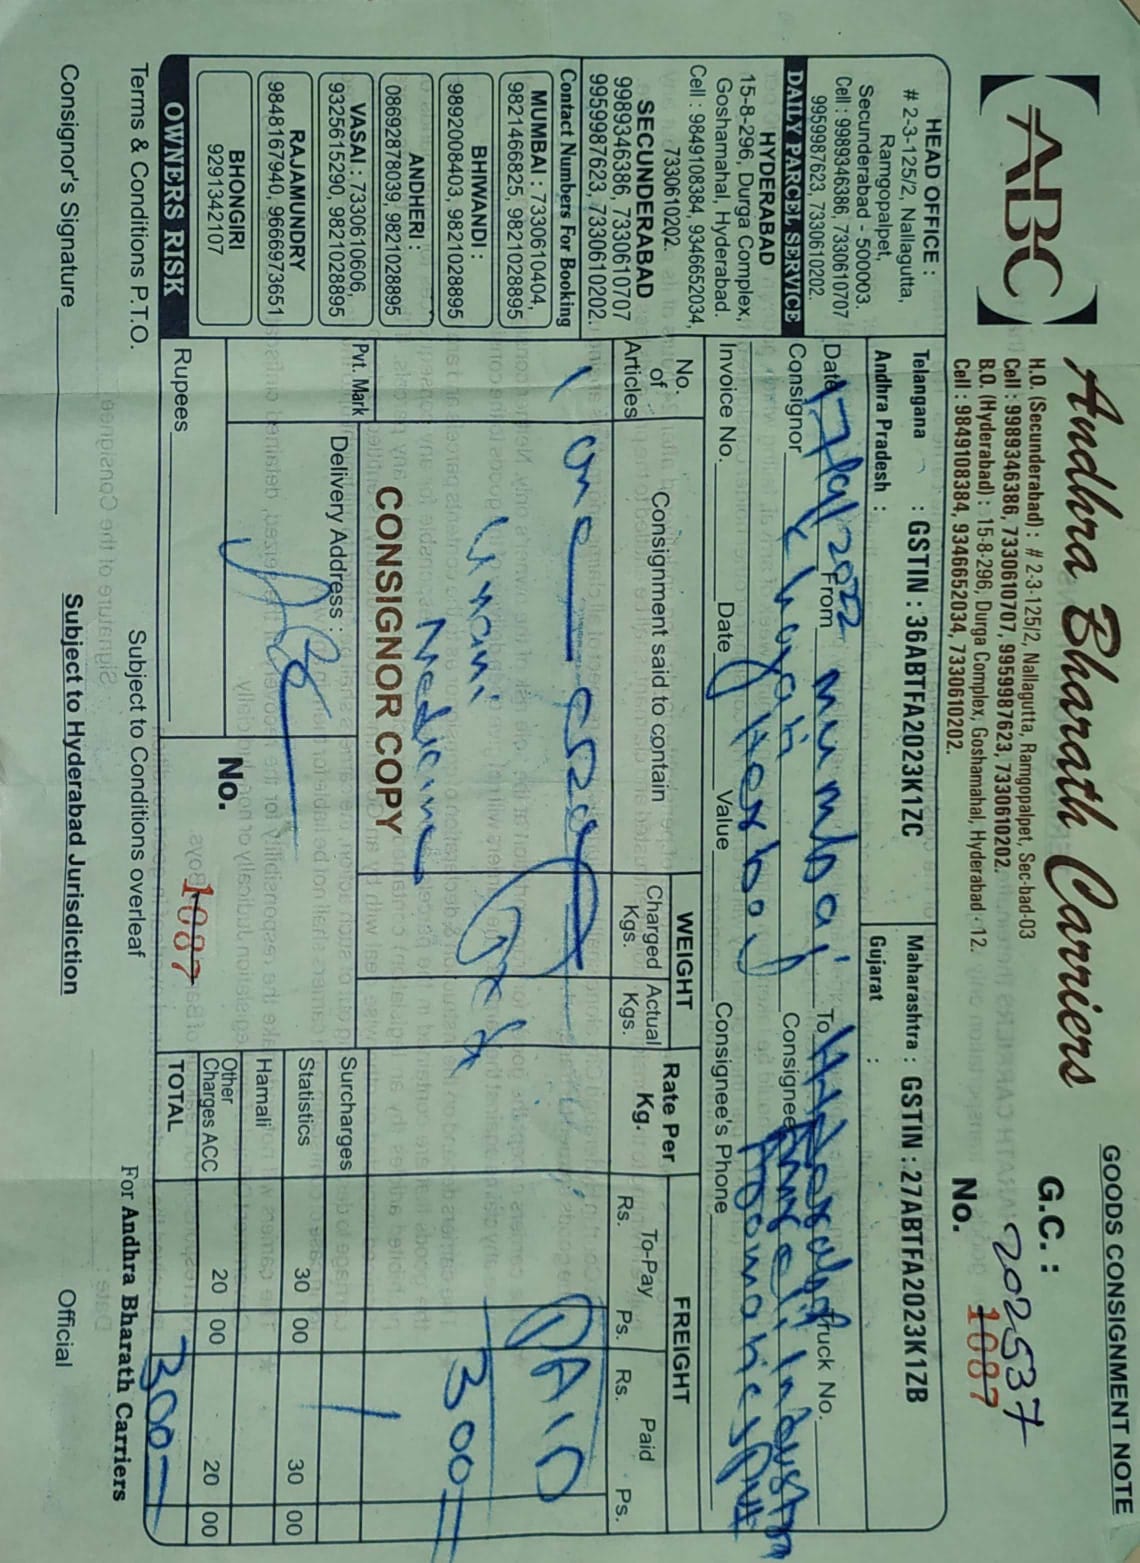 GOODS CONSIGNMENT NOTE
ABC
Andhra Bharath Carriers
G.C. :
202537
H.O. (Secunderabad) : # 2-3-125/2, Nallagutta, Ramgopalpet, Sec-bad-03
Cell : 9989346386, 7330610707, 9959987623, 7330610202.
B.O. (Hyderabad) : 15-8-296, Durga Complex, Goshamahal, Hyderabad - 12.
Cell : 9849108384, 9346652034, 7330610202.
No. 1087
HEAD OFFICE :
# 2-3-125/2, Nallagutta,
Ramgopalpet,
Secunderabad - 500003.
Cell : 9989346386, 7330610707
9959987623, 7330610202.
Telangana : GSTIN : 36ABTFA2023K1ZC
Maharashtra : GSTIN : 27ABTFA2023K1ZB
Andhra Pradesh :
Gujarat :
Date 17/09/2022 From mumbai To Truck No.
Consignor Consignee
Invoice No. Date Value Consignee's Phone
DAILY PARCEL SERVICE
HYDERABAD
15-8-296, Durga Complex,
Goshamahal, Hyderabad.
Cell : 9849108384, 9346652034,
7330610202.
SECUNDERABAD
9989346386, 7330610707
9959987623, 7330610202.
Contact Numbers For Booking
MUMBAI : 7330610404,
9821466825, 9821028895
BHIWANDI :
9892008403, 9821028895
ANDHERI :
08692878039, 9821028895
VASAI : 7330610606,
9325615290, 9821028895
RAJAMUNDRY
9848167940, 9666973651
BHONGIRI
9291342107
OWNERS RISK
No. of Articles
Consignment said to contain
WEIGHT
Charged Kgs.
Actual Kgs.
Rate Per Kg.
FREIGHT
To-Pay
Rs. Ps.
Paid
Rs. Ps.
1 one
PAID
unani
Medicine
300
CONSIGNOR COPY
Pvt. Mark
Delivery Address :
Surcharges
Statistics 30 00 30 00
Hamali
Other Charges ACC 20 00 20 00
TOTAL 300
Rupees
No. 1087
Terms & Conditions P.T.O.
Subject to Conditions overleaf
For Andhra Bharath Carriers
Consignor's Signature
Subject to Hyderabad Jurisdiction
Official